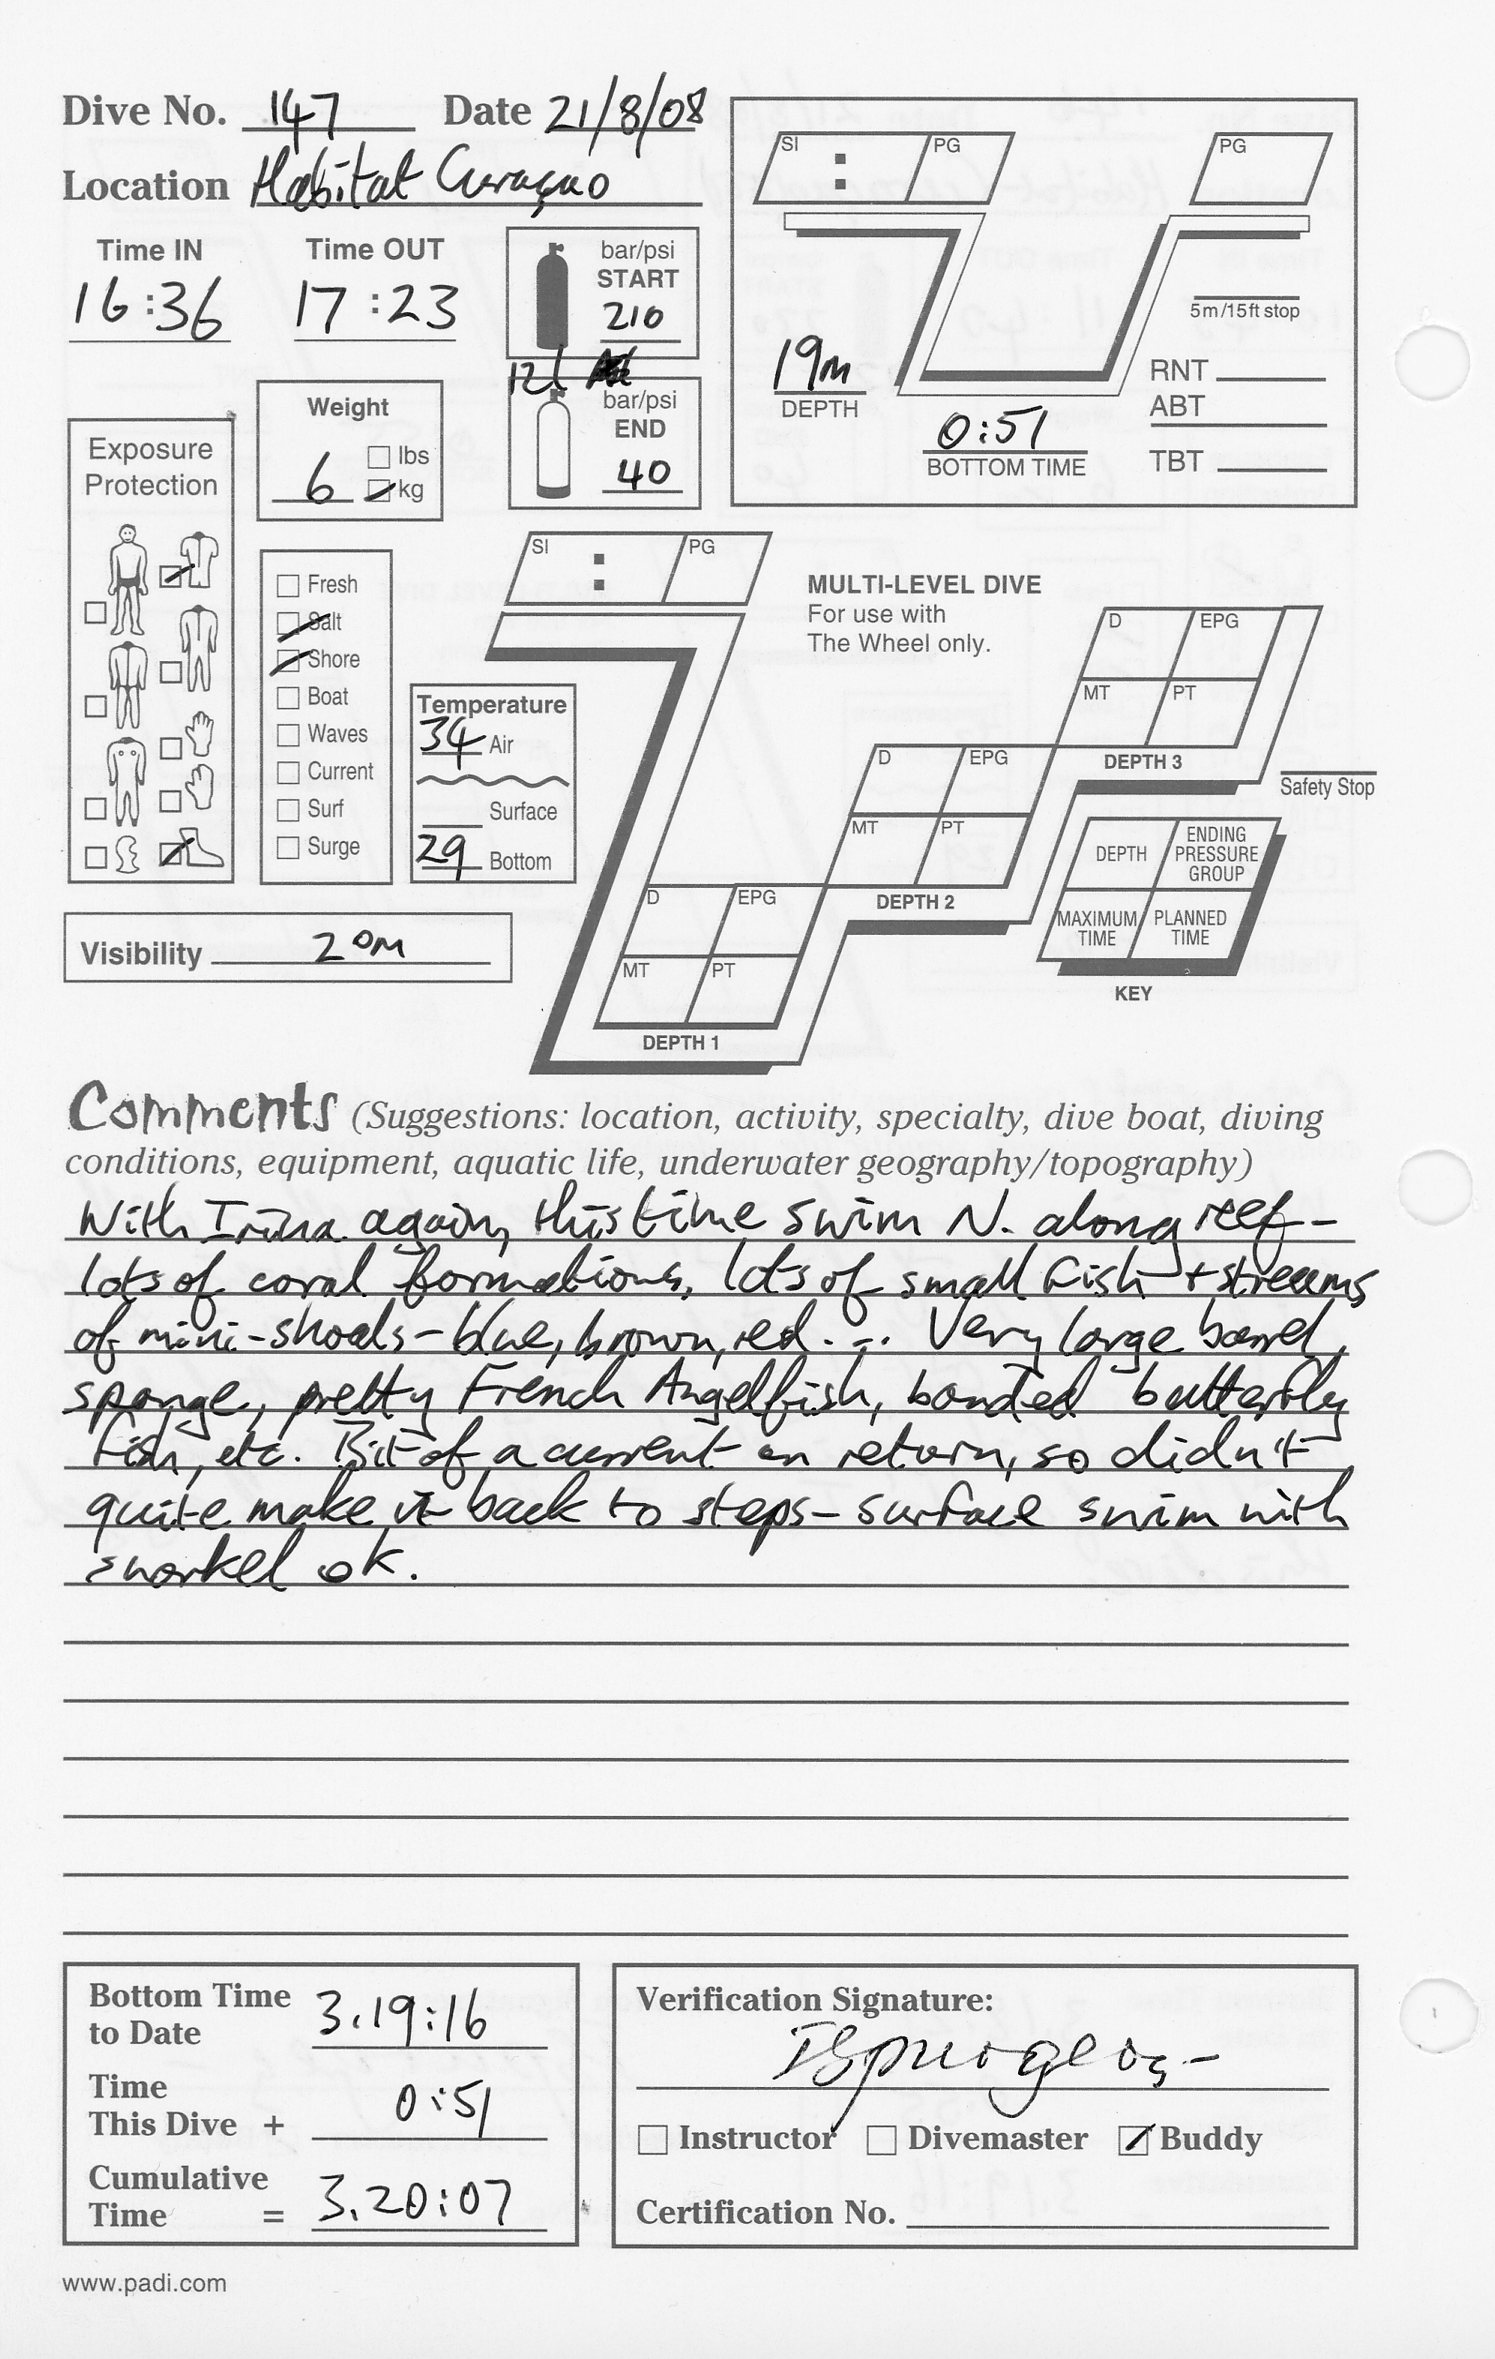 Dive No. 147 Date 21/8/08
Location Habitat Curaçao
Time IN Time OUT
16:36 17:23
bar/psi
START
210
12l
bar/psi
END
40
Weight
6 lbs
kg
Exposure
Protection
Fresh
Salt
Shore
Boat
Waves
Current
Surf
Surge
Temperature
34 Air
Surface
29 Bottom
Visibility 20m
SI : PG
PG
5m/15ft stop
19m
DEPTH
0:51
BOTTOM TIME
RNT
ABT
TBT
SI : PG
MULTI-LEVEL DIVE
For use with
The Wheel only.
D EPG
MT PT
DEPTH 3
D EPG
MT PT
DEPTH 2
D EPG
MT PT
DEPTH 1
Safety Stop
DEPTH ENDING PRESSURE GROUP
MAXIMUM TIME PLANNED TIME
KEY
Comments (Suggestions: location, activity, specialty, dive boat, diving
conditions, equipment, aquatic life, underwater geography/topography)
With Irina again, this time swim N. along reef -
lots of coral formations, lots of small fish + streams
of mini-shoals - blue, brown, red... Very large barrel
sponge, pretty French Angelfish, banded butterfly
fish, etc. Bit of a current on return, so didn't
quite make it back to steps - surface swim with
snorkel ok.
Bottom Time
to Date 3.19:16
Time
This Dive + 0:51
Cumulative
Time = 3.20:07
Verification Signature:
Instructor Divemaster Buddy
Certification No.
www.padi.com